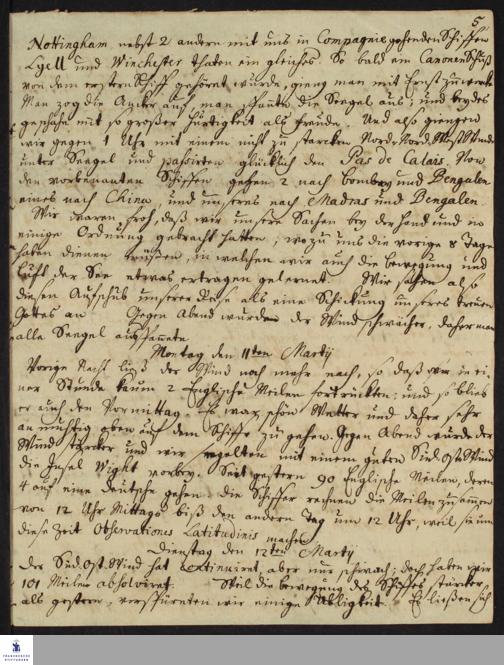 5
Nottingham nebst 2 andern mit uns in Compagnie gehenden Schiffen
Lyell und Winchester thaten ein gleiches. So bald ein CanonenSchuß
von dem erstern Schiff gehöret wurde, gieng man mit Ernst zu werck.
Man zog die Ancker auf, man spannte die Seegel aus; und beydes
geschahe mit so großer Hurtigkeit als Freuden. Und also giengen
wir gegen 1 Uhr mit einem nicht zu starcken Nord-Nord-West Winde
unter Seegel und passirten glücklich den Pas de Calais. Von
den vorbenanten Schiffen gehen 2 nach Bombay und Bengalen
eines nach China, und unseres nach Madras und Bengalen.
Wir waren froh, daß wir unsere Sachen bey der hand und in
einige Ordnung gebracht hatten; wozu uns die vorige 8 Tage
haben dienen müßen, in welchen wir auch die bewegung und
Luft der See etwas ertragen gelernet. Wir sahen also
diesen Aufschub unserer Reise als eine Schickung unseres treuen
Gottes an. Gegen Abend wurde der Wind schwächer, daher man
alle Seegel aufspannete.
Montag den 11ten Martij
Vorige Nacht ließ der Wind noch mehr nach, so daß wir in ei-
ner Stunde kaum 2 Englische Meilen fortrückten; und so blieb
er auch den Vormittag. Es war schön Wetter und daher sehr
anmuthig oben auf dem Schiffe zu gehen. Gegen Abend wurde der
Wind stärcker und wir segelten mit einem guten Süd-Ost-Wind
die Insel Wight vorbey. Seit gestern 90 Englische Meilen, deren
4 auf eine deutsche gehen. Die Schiffer rechnen die Meilen zusammen
von 12 Uhr Mittags biß den andern Tag um 12 Uhr, weil sie um
diese Zeit Observationes Latitudinis machen.
Dienstag den 12ten Martij
Der Süd-Ost-Wind hat continuiret, aber nur schwach; doch haben wir
101 Meilen absolviret. Weil die bewegung des Schiffes starcker,
als gestern, verspüreten wir einige Übligkeit. Es ließen sich
FRANCKESCHE
STIFTUNGEN